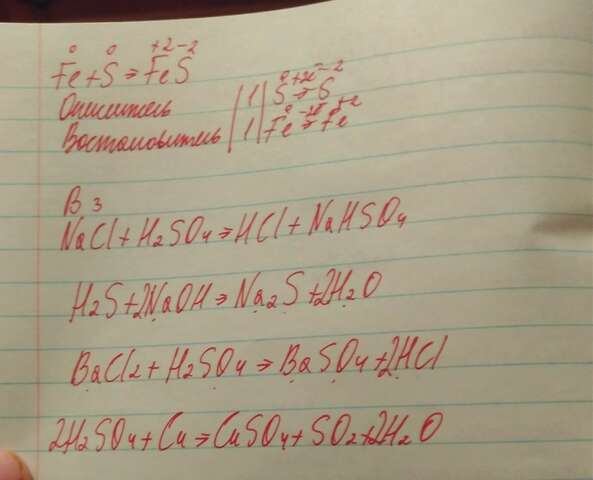 0 0 +2 -2
Fe + S ⇒ FeS
Окислитель | 1 | S⁰ +2e⁻ ⇒ S⁻²
Востановитель | 1 | Fe⁰ -2e⁻ ⇒ Fe⁺²
В 3
NaCl + H2SO4 ⇒ HCl + NaHSO4
H2S + 2NaOH ⇒ Na2S + 2H2O
BaCl2 + H2SO4 ⇒ BaSO4 + 2HCl
2H2SO4 + Cu ⇒ CuSO4 + SO2 + 2H2O